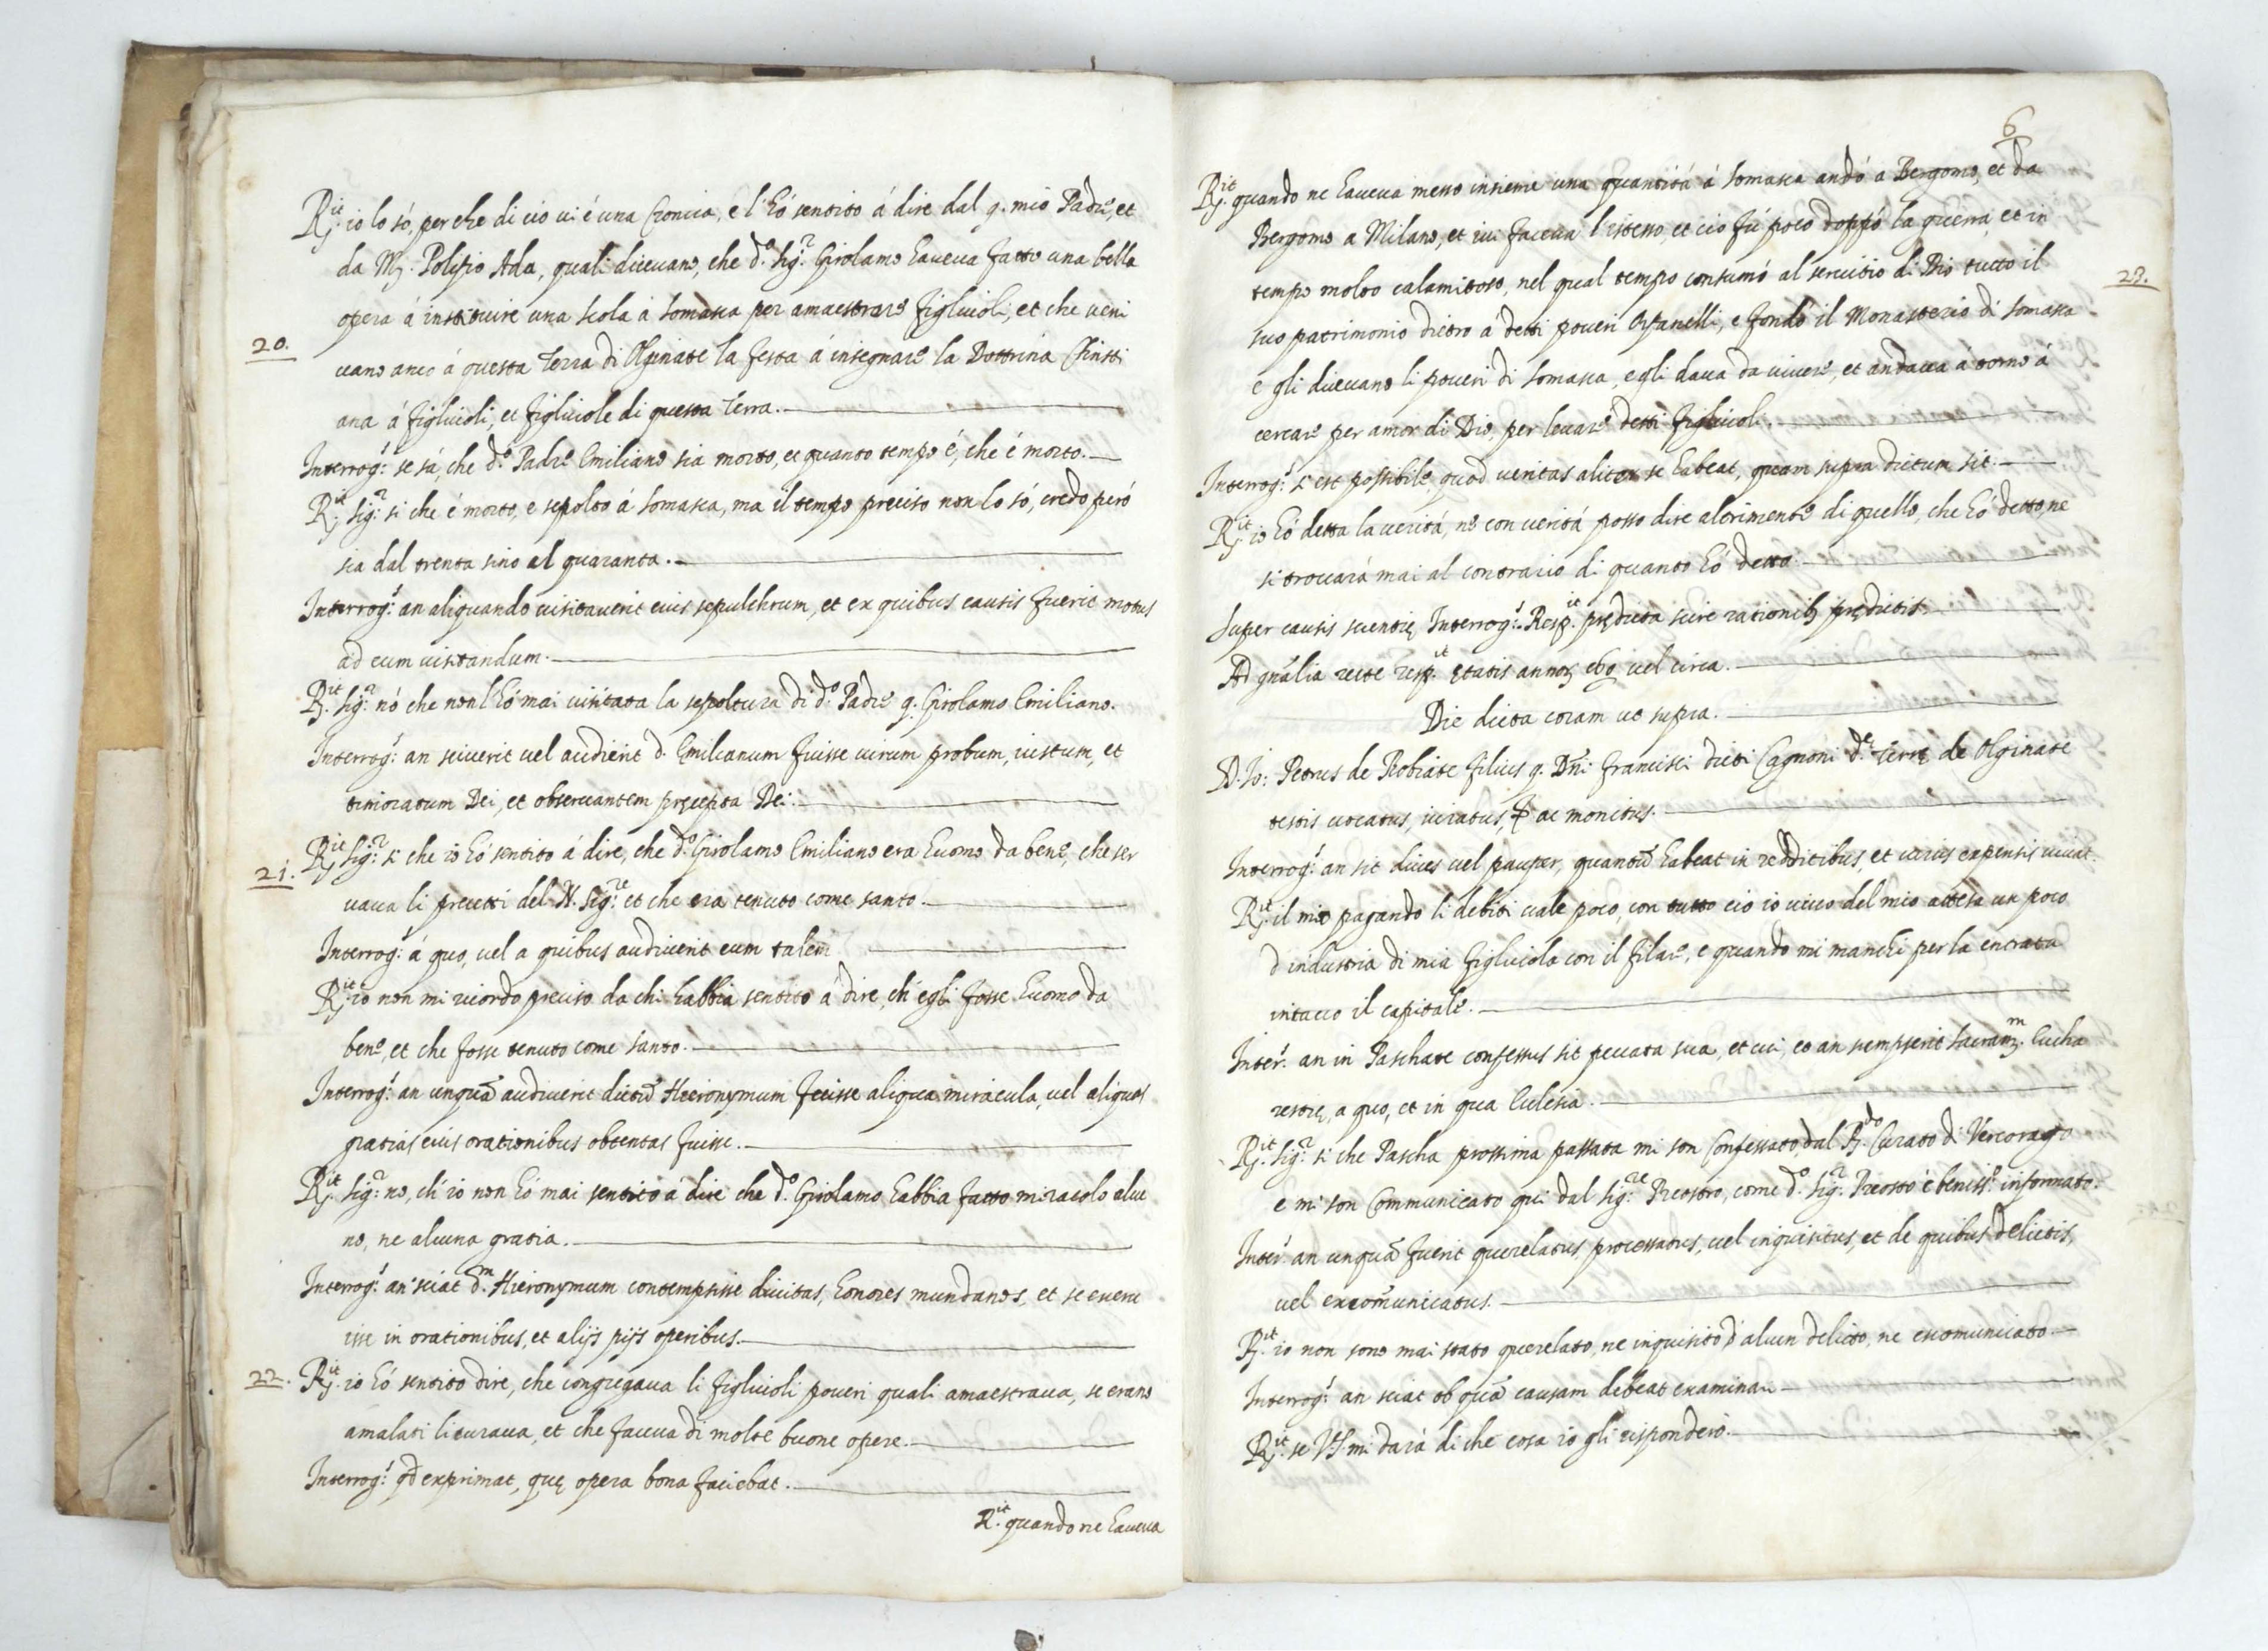 R.it io lo só, perche di ciò ui é una Cronica, e l'hó sentito á dire dal q. mio Padre, et
da M.r Polisio Ada, quali diceuano, che d.o Sig.r Girolamo haueua fatto una bella
opera á instituire una scola á Somasca per amaestrare figliuioli, et che ueni
20.
uano anco á questa Terra di Olginate la festa á insegnare la Dottrina Christi
ana á figliuioli, et figliuiole di questa Terra.
Interrog.s se sá, che d.o Padre Emiliano sia morto, et quanto tempo é, che é morto.
R.it Sig.r si che é morto, e sepolto á Somasca, ma il tempo preciso non lo só, credo peró
sia dal trenta sino al quaranta.
Interrog.s an aliquando uisitauerit eius sepulchrum, et ex quibus causis fuerit motus
ad eum uisitandum.
R.it Sig.r nó che non l'hó mai uisitata la sepoltura di d.o Padre q. Girolamo Emiliano.
Interrog.s an sciuerit uel audierit d. Emilianum fuisse uirum probum, iustum, et
timoratum Dei, et obseruantem pręcepta Dei.
21.
R.it Sig.r si che io hó sentito á dire, che d.o Girolamo Emiliano era huomo da bene, che ser
uaua li precetti del N. Sig.re et che era tenuto come santo.
Interrog.s á quo, uel a quibus audiuerit eum talem
R.it io non mi ricordo preciso da chi habbia sentito á dire, ch'egli fosse huomo da
bene, et che fosse tenuto come santo.
Interrog.s an unquã audiuerit dictũ Hieronymum fecisse aliqua miracula, uel aliquas
gratias eius orationibus obtentas fuisse.
R.it Sig.r no, ch'io non hó mai sentito á dire che d.o Girolamo habbia fatto miracolo alcu
no, ne alcuna gratia.
Interrog.s an sciat d.m Hieronymum contempsisse diuitias, honores mundanos, et se exercu
isse in orationibus, et alijs pijs operibus.
22.
R.it io hó sentito dire, che congregaua li figliuioli poueri quali amaestraua, se erano
amalati li curaua, et che faceua di molte buone opere.
Interrog.s qđ exprimat, quę opera bona faciebat.
R.it quando ne haueua
6
R.it quando ne haueua messo insieme una quantitá á Somasca andó a Bergomo, et da
Bergomo a Milano, et iui faceua l'istesso, et ció fú poco doppó la guerra, et in
23.
tempo molto calamitoso, nel qual tempo consumó al seruitio di Dio tutto il
suo patrimonio dietro a detti poueri Orfanelli, e fondó il Monasterio di Somasca
e gli diceuano li poueri di Somasca, e gli daua da uiuere, et andaua á torno á
cercare per amor di Dio, per leuare detti figliuioli.
Interrog.s si est possibile, quod ueritas aliter se habeat, quam supra dictum sit.
R.it io hó detta la ueritá, ne con ueritá posso dire altrimente di quello, che hó detto, ne
si trouará mai al contrario di quanto hó detto.
Super causis scientię Interrog.s Resp.it prędicta scire rationib; prędictis.
Ad gñalia recte resp.it ętatis annor; 69 uel circa.
Die dicta coram ut supra.
D. Io: Petrus de Robiate filius q. Dñi Francisci dicti Cagnoni d.ę Terrę de Olginate
testis uocatus, iuratus, ac monitus.
Interrog.s an sit diues uel pauper, quantũ habeat in redditibus, et cuius expensis uiuat.
R.it il mio pagando li debiti uale poco, con tutto ció io uiuo del mio attesa un poco
d'industria di mia figliuiola con il filare, e quando mi manchi per la entrata
intacco il capitale.
Inter.s an in Paschate confessus sit peccata sua, et cui, et an sumpserit Sacram.m Eucha
restię, a quo, et in qua Eclesia.
R.it Sig.r si che Pascha prossima passata mi son Confessato dal R.do Curato di Vercorago
e mi son Communicato qui dal Sig.re Preosto, come d.o Sig.r Preosto é beniss.o informato.
Inter.s an unquã fuerit querelatus, processatus, uel inquisitus, et de quibus delictis,
uel excõmunicatus.
R.it io non sono mai stato querelato, ne inquisito d'alcun delicto, ne excomunicato
Interrog.s an sciat ob quã causam debeat examinari
R.it se V.S. mi dará di che cosa io gli risponderó.